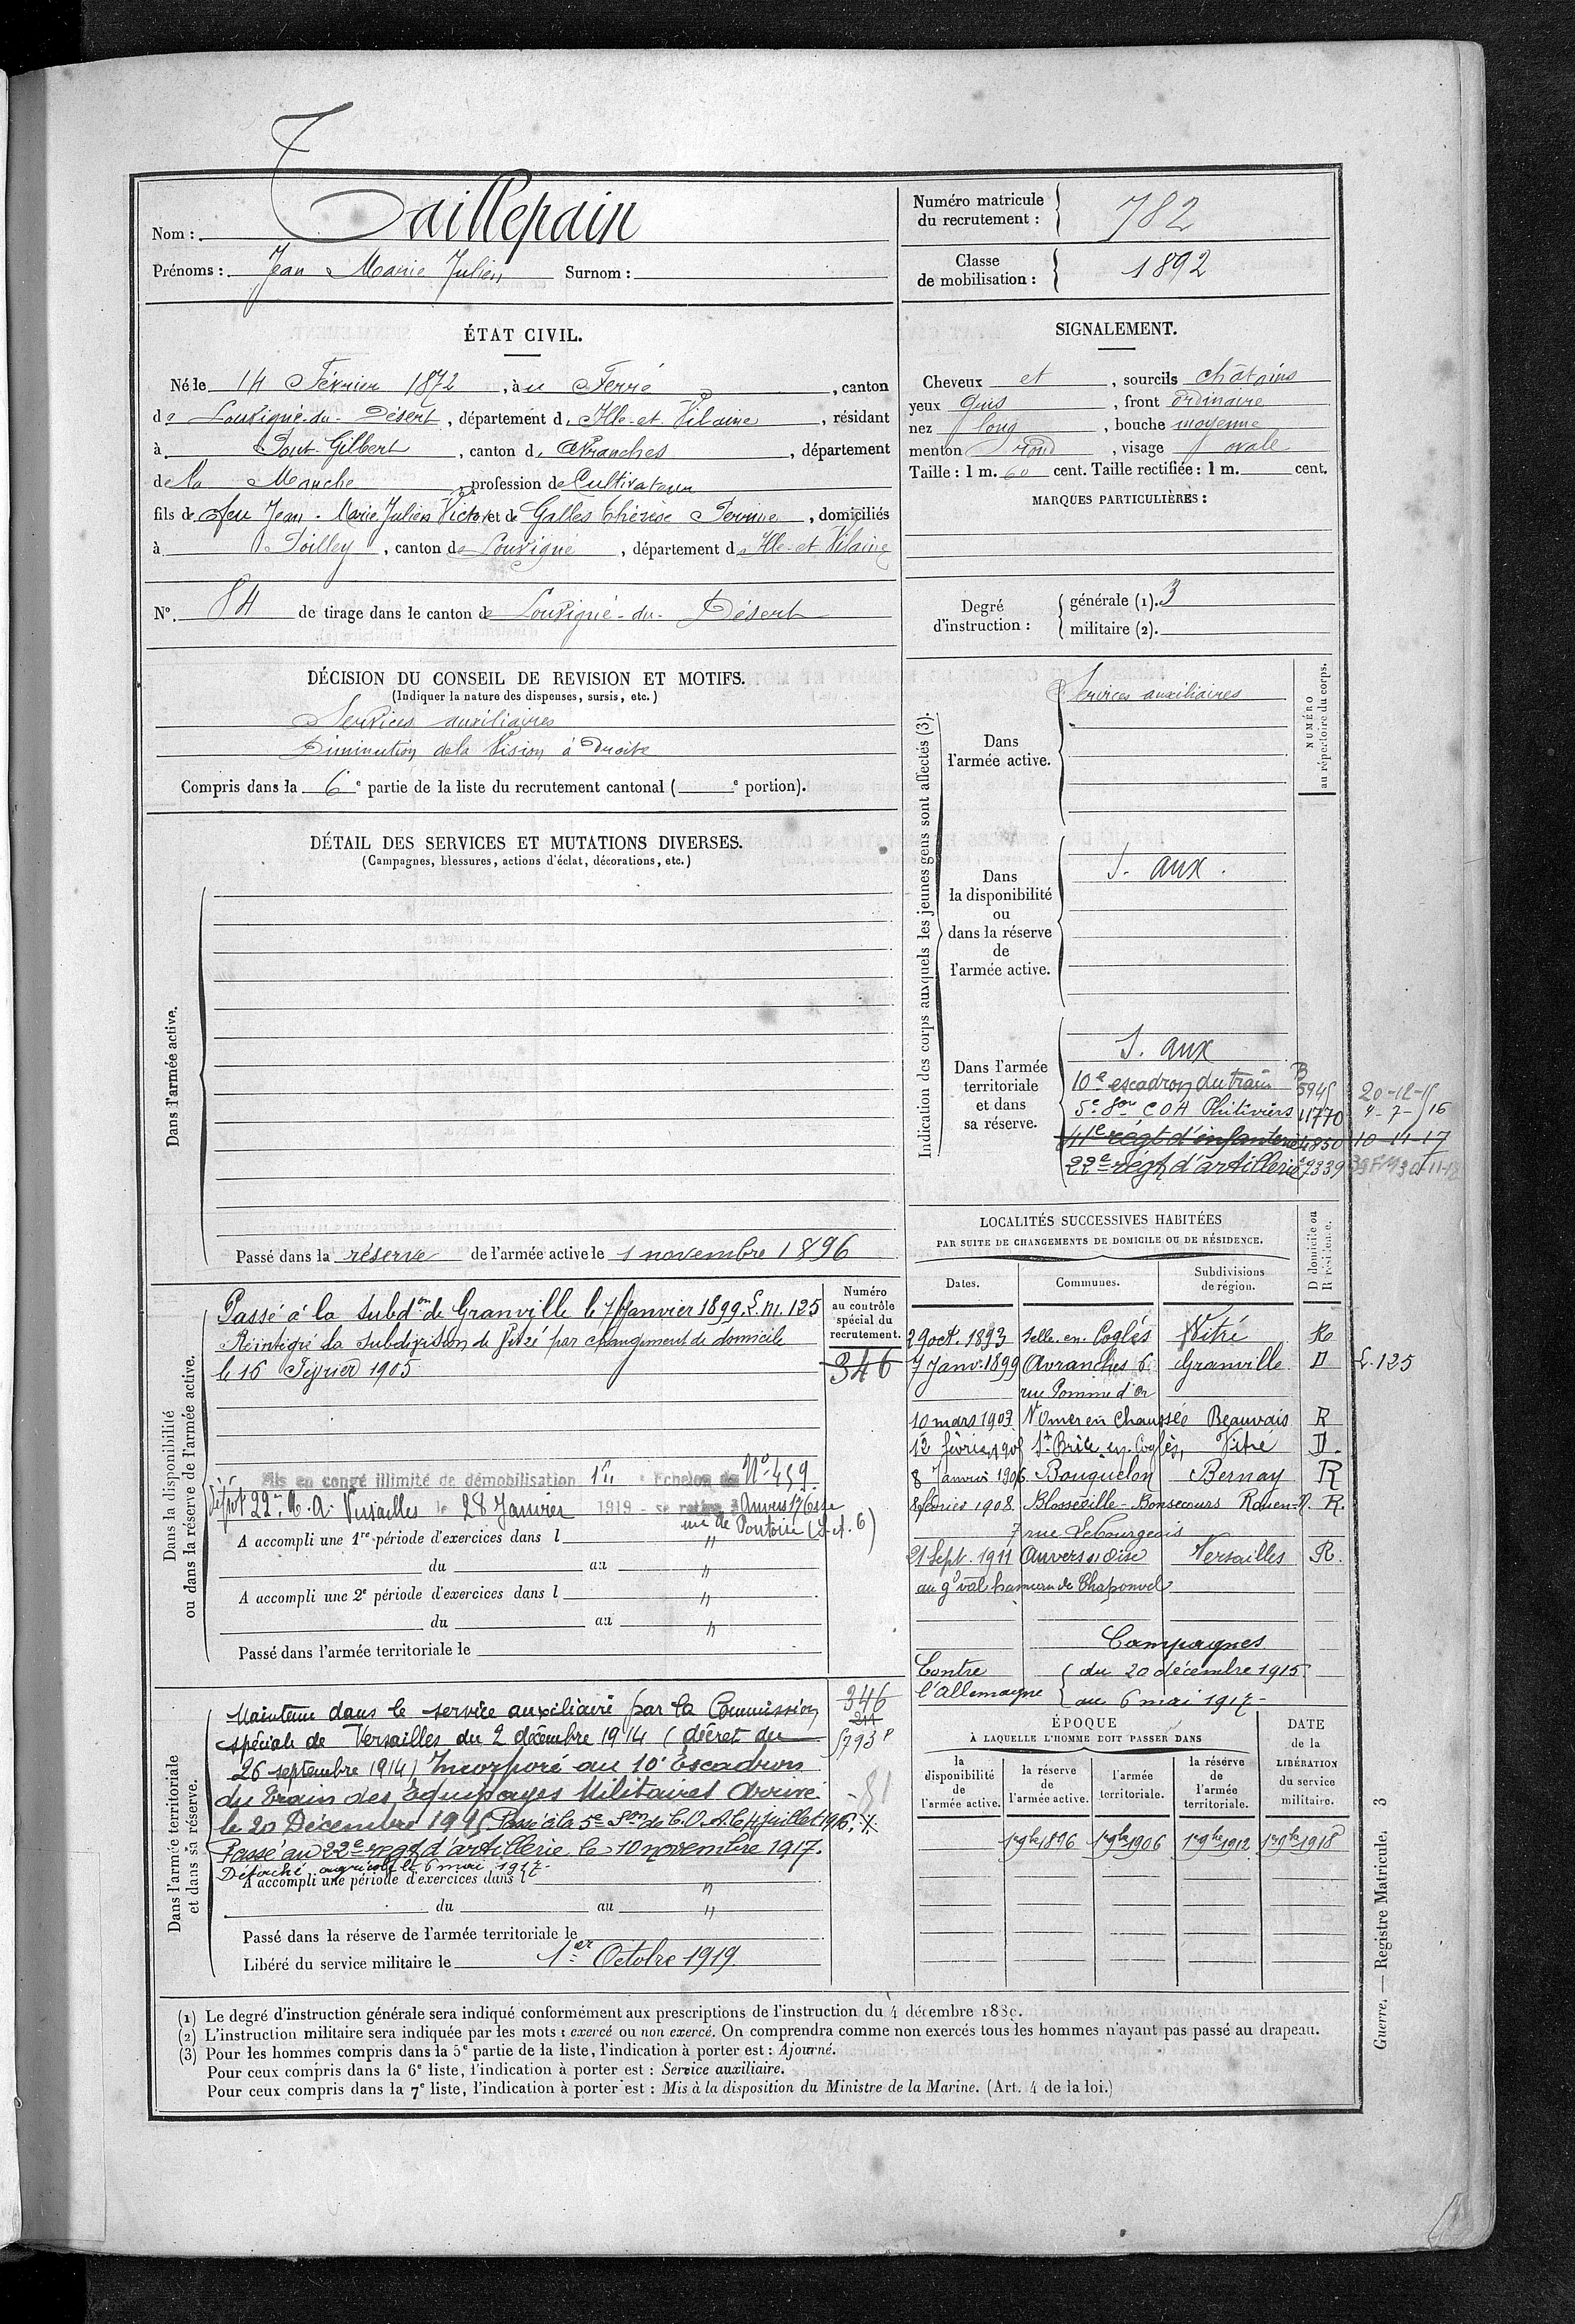 Nom : Taillepain
Prénoms : Jean Marie Julien Surnom :
Numéro matricule du recrutement : 782
Classe de mobilisation : 1892
ÉTAT CIVIL.
Né le 14 Février 1872, à u Ferré, canton
de Louvigné-du-Désert, département d. Ille-et-Vilaine, résidant
à Pont-Gilbert, canton d. Avranches, département
de la Manche, profession de Cultivateur
fils de feu Jean-Marie Julien Victor et de Galles Thérèse Perrine, domiciliés
à Poilley, canton de Louvigné, département d Ille-et-Vilaine
N°. 84 de tirage dans le canton de Louvigné-du-Désert
SIGNALEMENT.
Cheveux et, sourcils châtains
yeux gris, front ordinaire
nez long, bouche moyenne
menton rond, visage ovale
Taille : 1 m. 60 cent. Taille rectifiée : 1 m. cent.
MARQUES PARTICULIÈRES :
Degré d'instruction : générale (1). 3
militaire (2).
DÉCISION DU CONSEIL DE REVISION ET MOTIFS.
(Indiquer la nature des dispenses, sursis, etc.)
Services auxiliaires
Diminution de la vision à droite
Compris dans la 6e partie de la liste du recrutement cantonal ( e portion).
DÉTAIL DES SERVICES ET MUTATIONS DIVERSES.
(Campagnes, blessures, actions d'éclat, décorations, etc.)
Dans l'armée active.
Passé dans la réserve de l'armée active le 1 novembre 1896
Indication des corps auxquels les jeunes gens sont affectés (3).
NUMÉRO au répertoire du corps.
Dans l'armée active.
Services auxiliaires
Dans la disponibilité ou dans la réserve de l'armée active.
S. aux.
Dans l'armée territoriale et dans sa réserve.
S. aux
10e escadron du train B 5945 20-12-15
5e Son COA Phitiviers 11770 4-7-16
41e régt d'infanterie 4850 10-11-17
22e régt d'artillerie 7339
Dans la disponibilité ou dans la réserve de l'armée active.
Numéro au contrôle spécial du recrutement.
346
Passé à la Subdon de Granville le 7 Janvier 1899. L. m. 125
Réintégré la subdivision de Vitré par changement de domicile
le 16 Février 1905
Mis en congé illimité de démobilisation 1er Echelon No 459
dépôt 22e R.A. Versailles le 28 Janvier 1919 - se retire à Auvers s/Oise
rue de Pontoise (S.et.O)
A accompli une 1re période d'exercices dans l "
du au "
A accompli une 2e période d'exercices dans l "
du au "
Passé dans l'armée territoriale le
LOCALITÉS SUCCESSIVES HABITÉES
PAR SUITE DE CHANGEMENTS DE DOMICILE OU DE RÉSIDENCE.
D domicile ou R résidence.
Dates. Communes. Subdivisions de région.
29 oct. 1893 Selle-en-Coglès Vitré R
7 Janv. 1899 Avranches 6 Granville D L. 125
rue Pomme d'Or
10 mars 1903 St Omer en Chaussée Beauvais R
12 février 1905 St Brice en Coglès, Vitré D.
8 Janvier 1906 Bouquelon Bernay R
8 février 1908 Blosseville-Bonsecours Rouen-N. R.
7 rue Lebourgeois
21 Sept. 1911 Auvers s/Oise Versailles R.
au gd val hameau de Chaponval
Campagnes
Contre l'Allemagne du 20 décembre 1915
au 6 mai 1917-
Dans l'armée territoriale et dans sa réserve.
346
5793 P
Maintenu dans le service auxiliaire par la Commission
spéciale de Versailles du 2 décembre 1914 (décret du
26 septembre 1914) Incorporé au 10e Escadron
du train des Equipages Militaires Arrivé
le 20 Décembre 1915 Passé à la 5e Son de C.O.A. le 4 Juillet 1916.
Passé au 22e regt d'artillerie le 10 novembre 1917.
Détaché agricole le 6 mai 1917-
A accompli une période d'exercices dans l "
du au "
Passé dans la réserve de l'armée territoriale le
Libéré du service militaire le 1er Octobre 1919.
ÉPOQUE À LAQUELLE L'HOMME DOIT PASSER DANS
DATE de la LIBÉRATION du service militaire.
la disponibilité de l'armée active. la réserve de l'armée active. l'armée territoriale. la réserve de l'armée territoriale.
1er 9bre 1896 1er 9bre 1906 1er 9bre 1912 1er 9bre 1918
(1) Le degré d'instruction générale sera indiqué conformément aux prescriptions de l'instruction du 4 décembre 1889.
(2) L'instruction militaire sera indiquée par les mots : exercé ou non exercé. On comprendra comme non exercés tous les hommes n'ayant pas passé au drapeau.
(3) Pour les hommes compris dans la 5e partie de la liste, l'indication à porter est : Ajourné.
Pour ceux compris dans la 6e liste, l'indication à porter est : Service auxiliaire.
Pour ceux compris dans la 7e liste, l'indication à porter est : Mis à la disposition du Ministre de la Marine. (Art. 4 de la loi.)
Guerre. — Registre Matricule. 3